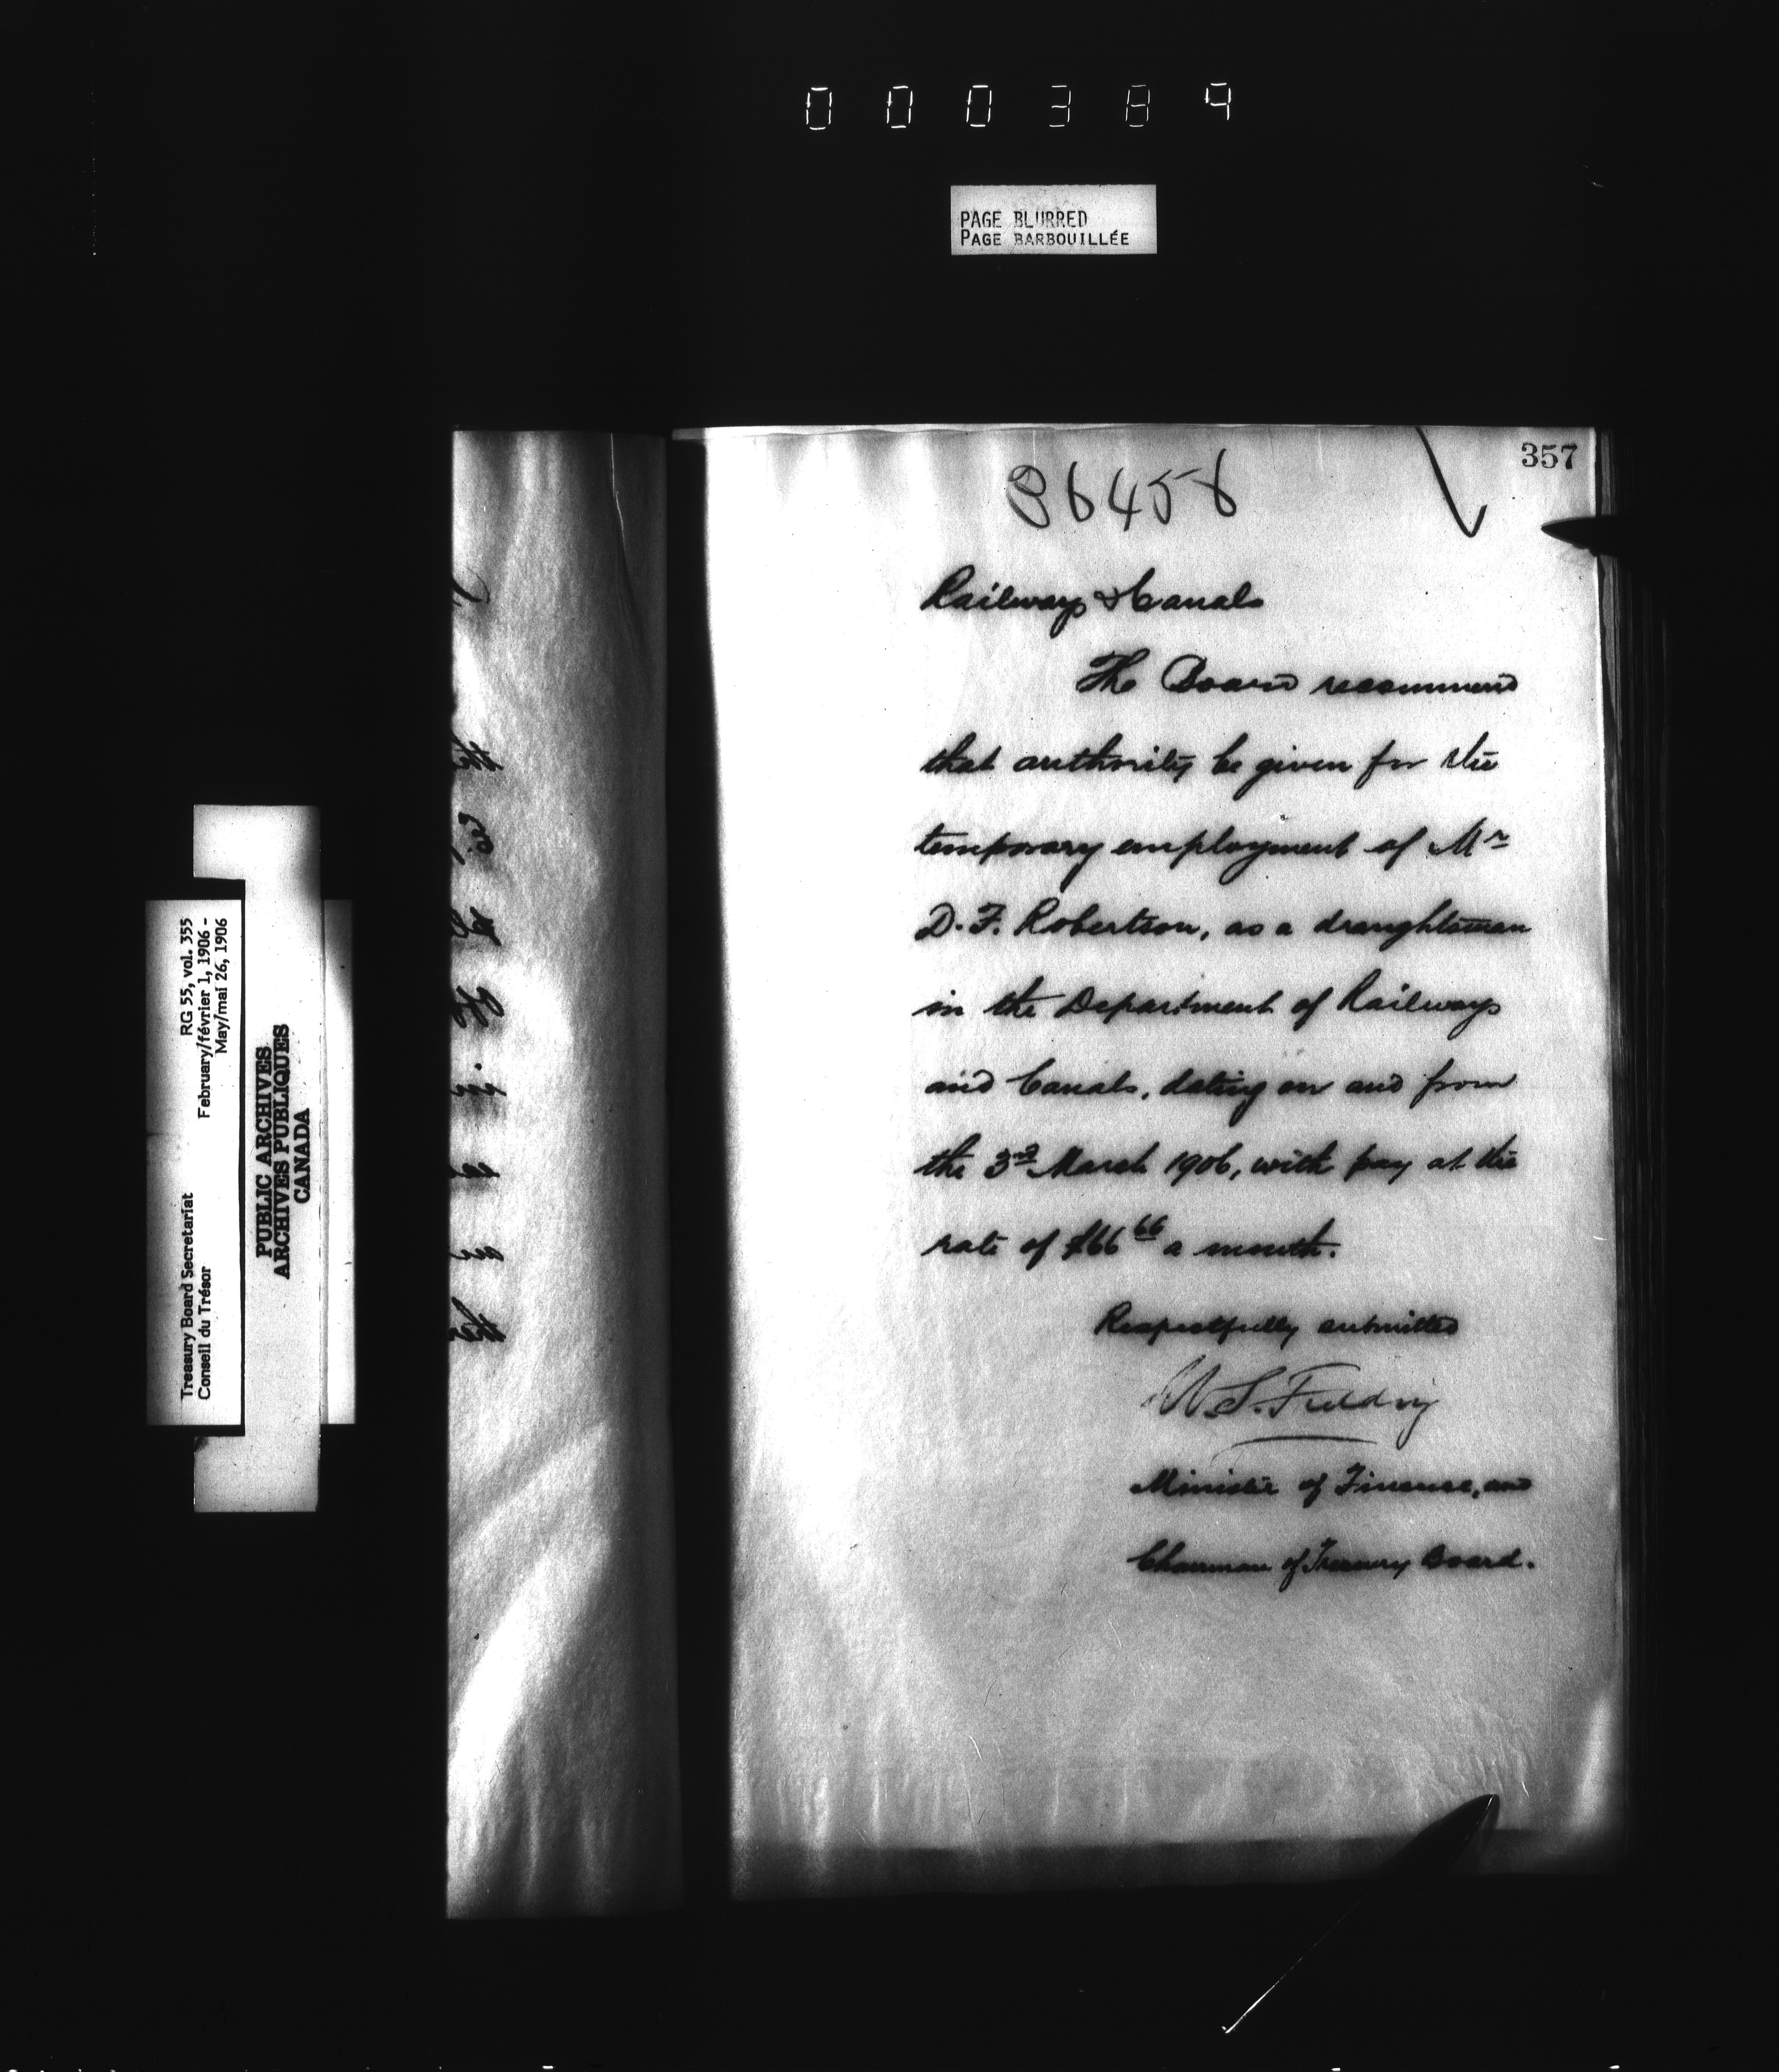 000389
PAGE BLURRED
PAGE BARBOUILLÉE
357
86456
Railways & Canals
The Board recommend
that authority be given for the
temporary employment of Mr
D. F. Robertson, as a draughtsman
in the Department of Railways
and Canals, dating on and from
the 3rd March 1906, with pay at the
rate of $66 66 a month.
Respectfully submitted
W. S. Fielding
Minister of Finance, and
Chairman of Treasury Board.
Treasury Board Secretariat RG 55, vol. 355
Conseil du Trésor February/février 1, 1906 -
May/mai 26, 1906
PUBLIC ARCHIVES
ARCHIVES PUBLIQUES
CANADA